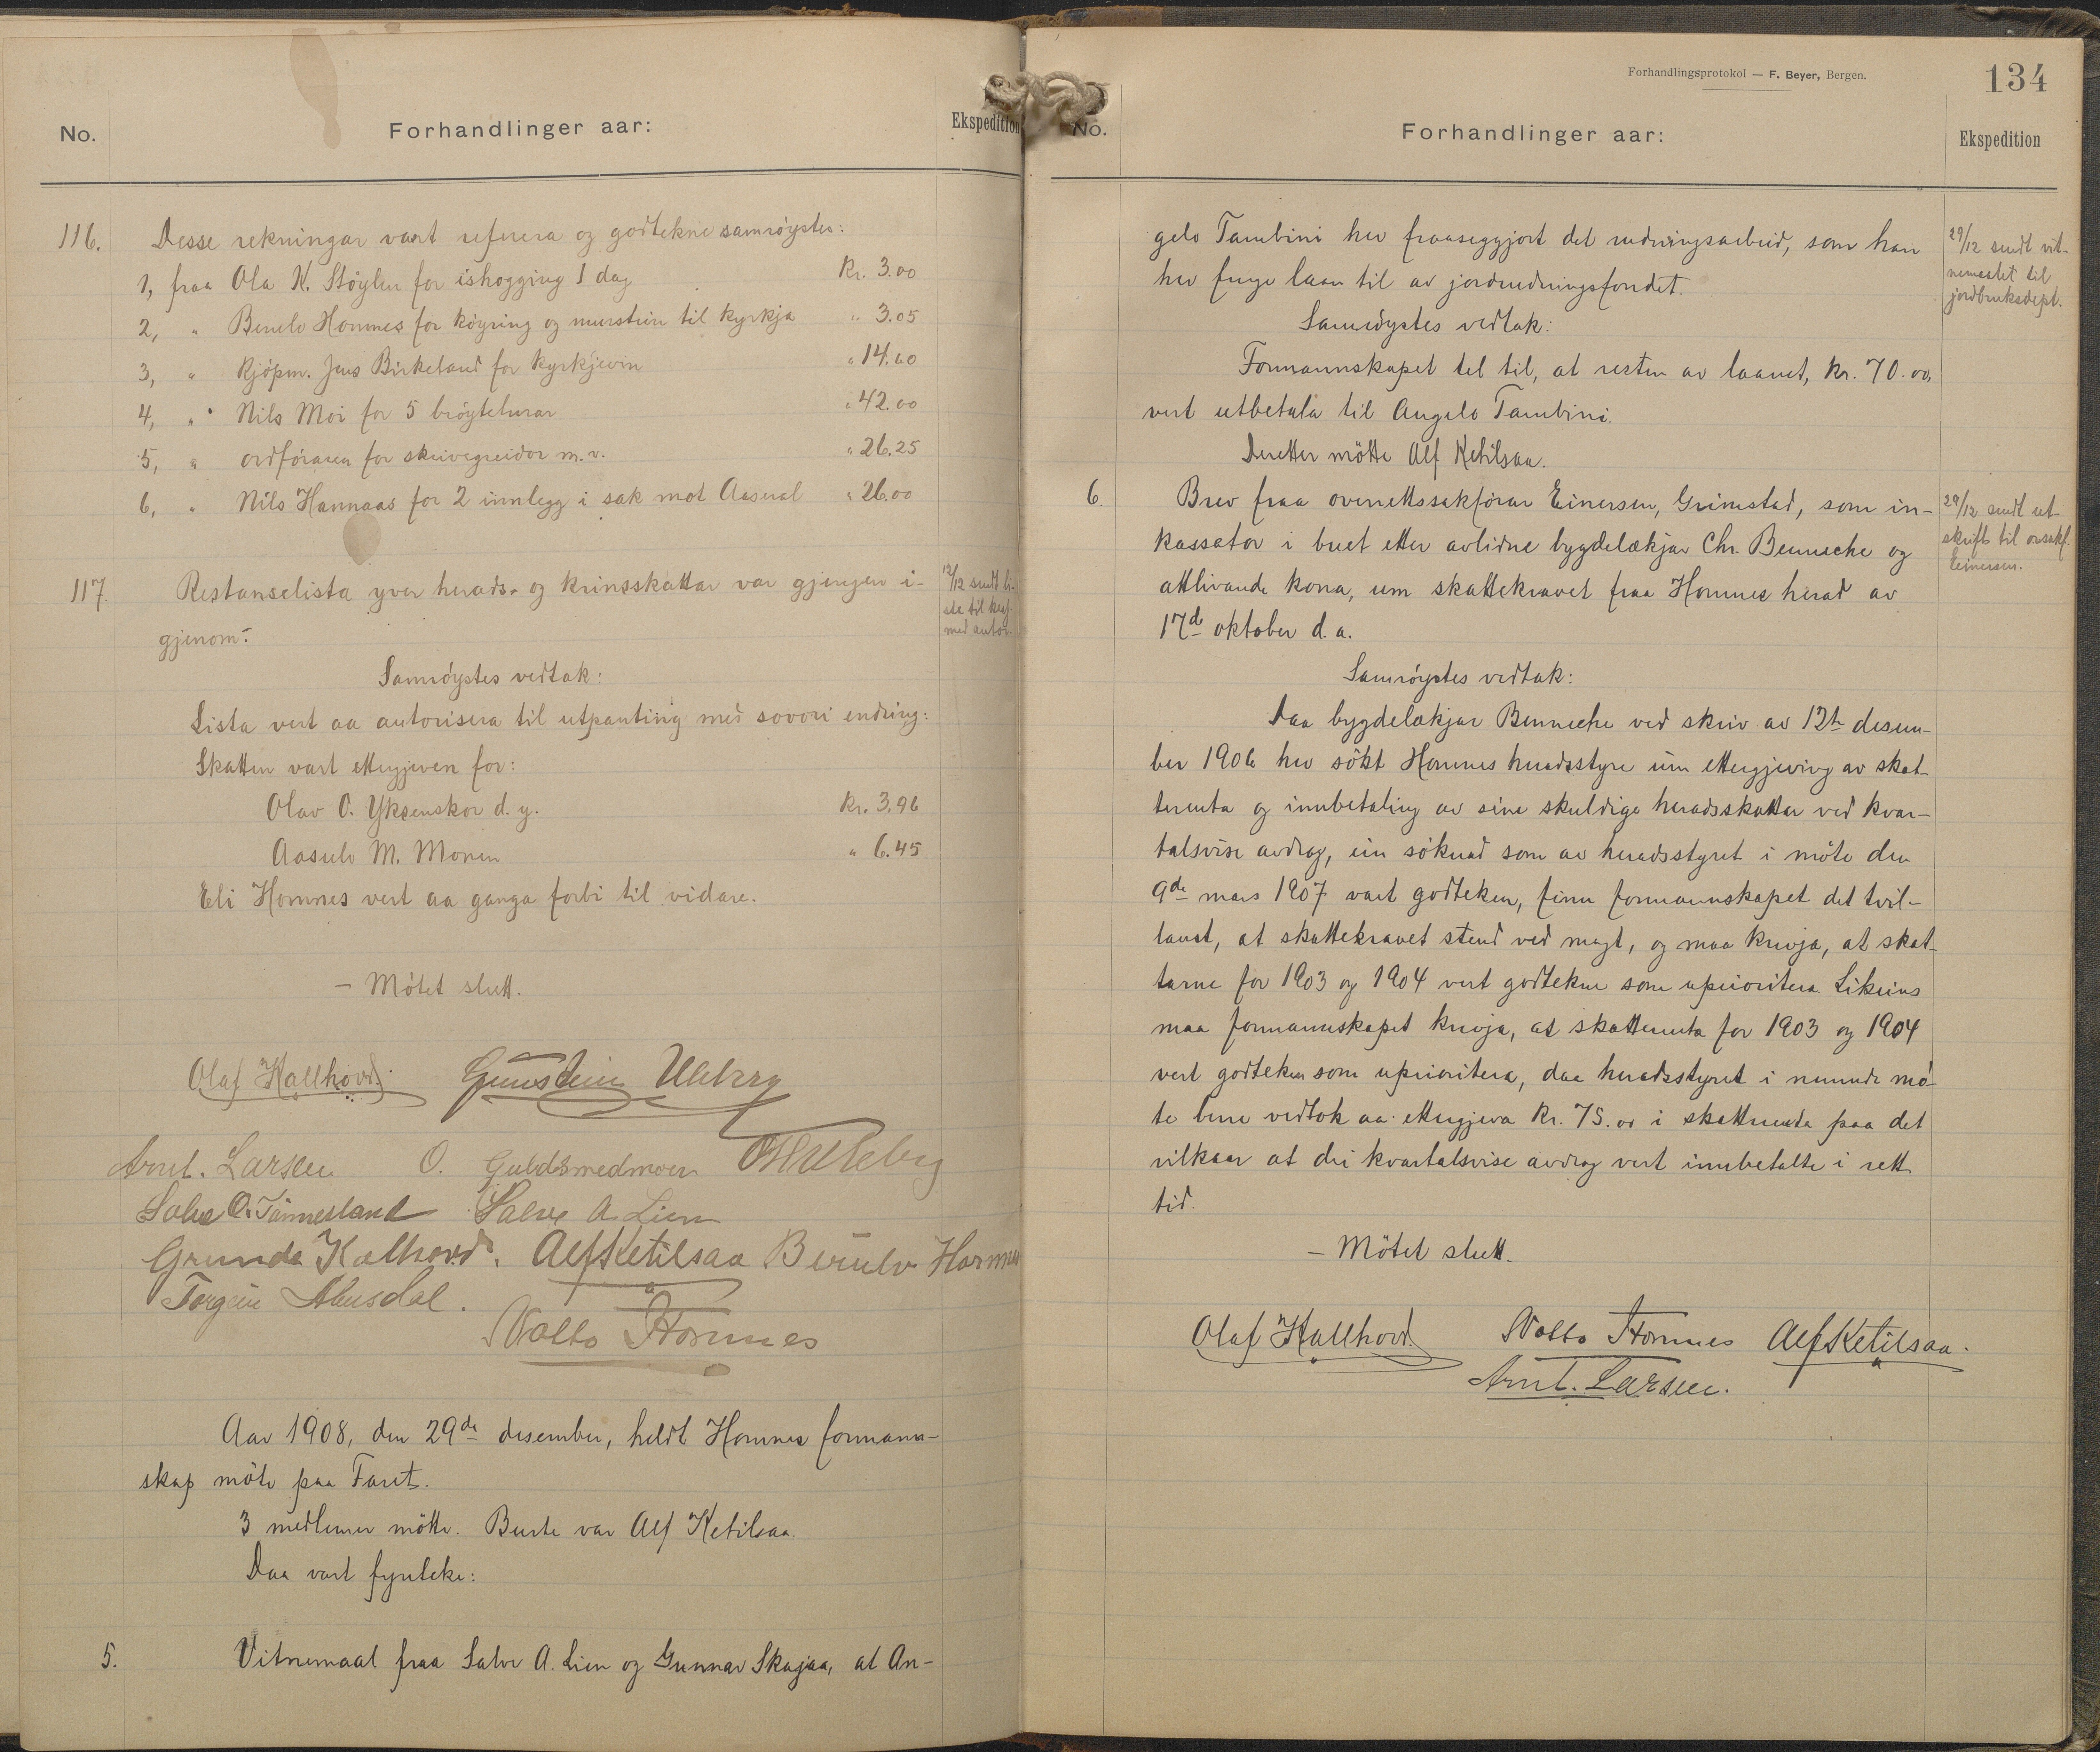 No.
Forhandlinger aar:
Ekspedition
116.
Desse rekningar vart referera og godtekne samrøystes:
1, fraa Ola K. Støylen for ishogging 1 dag Kr. 3.00
2, " Berulv Homnes for køyring og murstein til kyrkja " 3.05
3, " Kjøpm. Jens Birkeland for kyrkjevin " 14.40
4, " Nils Moi for 5 brøyteturar " 42.00
5, " ordføraren for skrivegreidor m.v. " 26.25
6, " Nils Hannaas for 2 innlegg i sak mot Aaseral " 26.00
117.
Restanselista yver herads- og krinsskattar var gjengen i-
gjenom.
12/12 sendt li-
sta til
med autor.
Samrøystes vedtak:
Lista vert aa autorisera til utpanting med sovori endring:
Skatten vart ettergjeven for:
Olav O. Yksenskor d.y. Kr. 3.96
Aasulv M. Monen " 6.45
Eli Homnes vert aa ganga forbi til vidare.
– Møtet slutt.
Olaf Kallhovd. Gunstein Uleberg
Arnt. Larsen O. Guldsmedmoen Uleberg
Salve O. Tønnesland Salve A. Lien
Gunde Kalhovd. Alf Ketilsaa Berulv Homnes
Torgeir Abusdal.
Notto Homnes
Aar 1908, den 29de desember, heldt Homnes formann-
skap møte paa Faret.
3 medlemer møtte. Burte var Alf Ketilsaa.
Daa vart fyreteke:
5.
Vitnemaal fraa Salve A. Lien og Gunnar Skajaa, at An-
Forhandlingsprotokol — F. Beyer, Bergen.
134
No.
Forhandlinger aar:
Ekspedition
gelo Tambini hev fraaseggjort det rudningsarbeid, som han
hev fenge laan til av jordrudningsfondet.
29/12 sendt vit-
nemaalet til
jordbruksdept.
Samrøystes vedtak:
Formannskapet tel til, at resten av laanet, kr. 70.00,
vert utbetala til Angelo Tambini.
Deretter møtte Alf Ketilsaa.
6.
Brev fraa overrettssakførar Einersen, Grimstad, som in-
kassator i buet etter avlidne bygdelækjar Chr. Benneche og
attlivande kona, um skattekravet fraa Homnes herad av
17de oktober d.a.
29/12 sendt ut-
skrift til orsakf.
Einersen.
Samrøystes vedtak:
Daa bygdelækjar Benneche ved skriv av 12te desem-
ber 1906 hev søkt Homnes heradsstyre um ettergjeving av skat-
terenta og innbetaling av sine skuldige heradsskattar ved kvar-
talsvise avdrag, ein søknad som av heradsstyret i møte den
9de mars 1907 vart godteken, finn formannskapet det tvil-
laust, at skattekravet stend ved magt, og maa krevja, at skat-
tarne for 1903 og 1904 vert godtekne som uprioritera. Likeins
maa formannskapet krevja, at skatterenta for 1903 og 1904
vert godteken som uprioritera, daa heradsstyret i nemnde mø-
te berre vedtok aa ettergjeva Kr. 75.00 i skatterenta paa det
vilkaar at dei kvartalsvise avdrag vert innbetalte i rett
tid.
– Møtet slutt.
Olaf Kallhovd. Notto Homnes Alf Ketilsaa.
Arnt. Larsen.